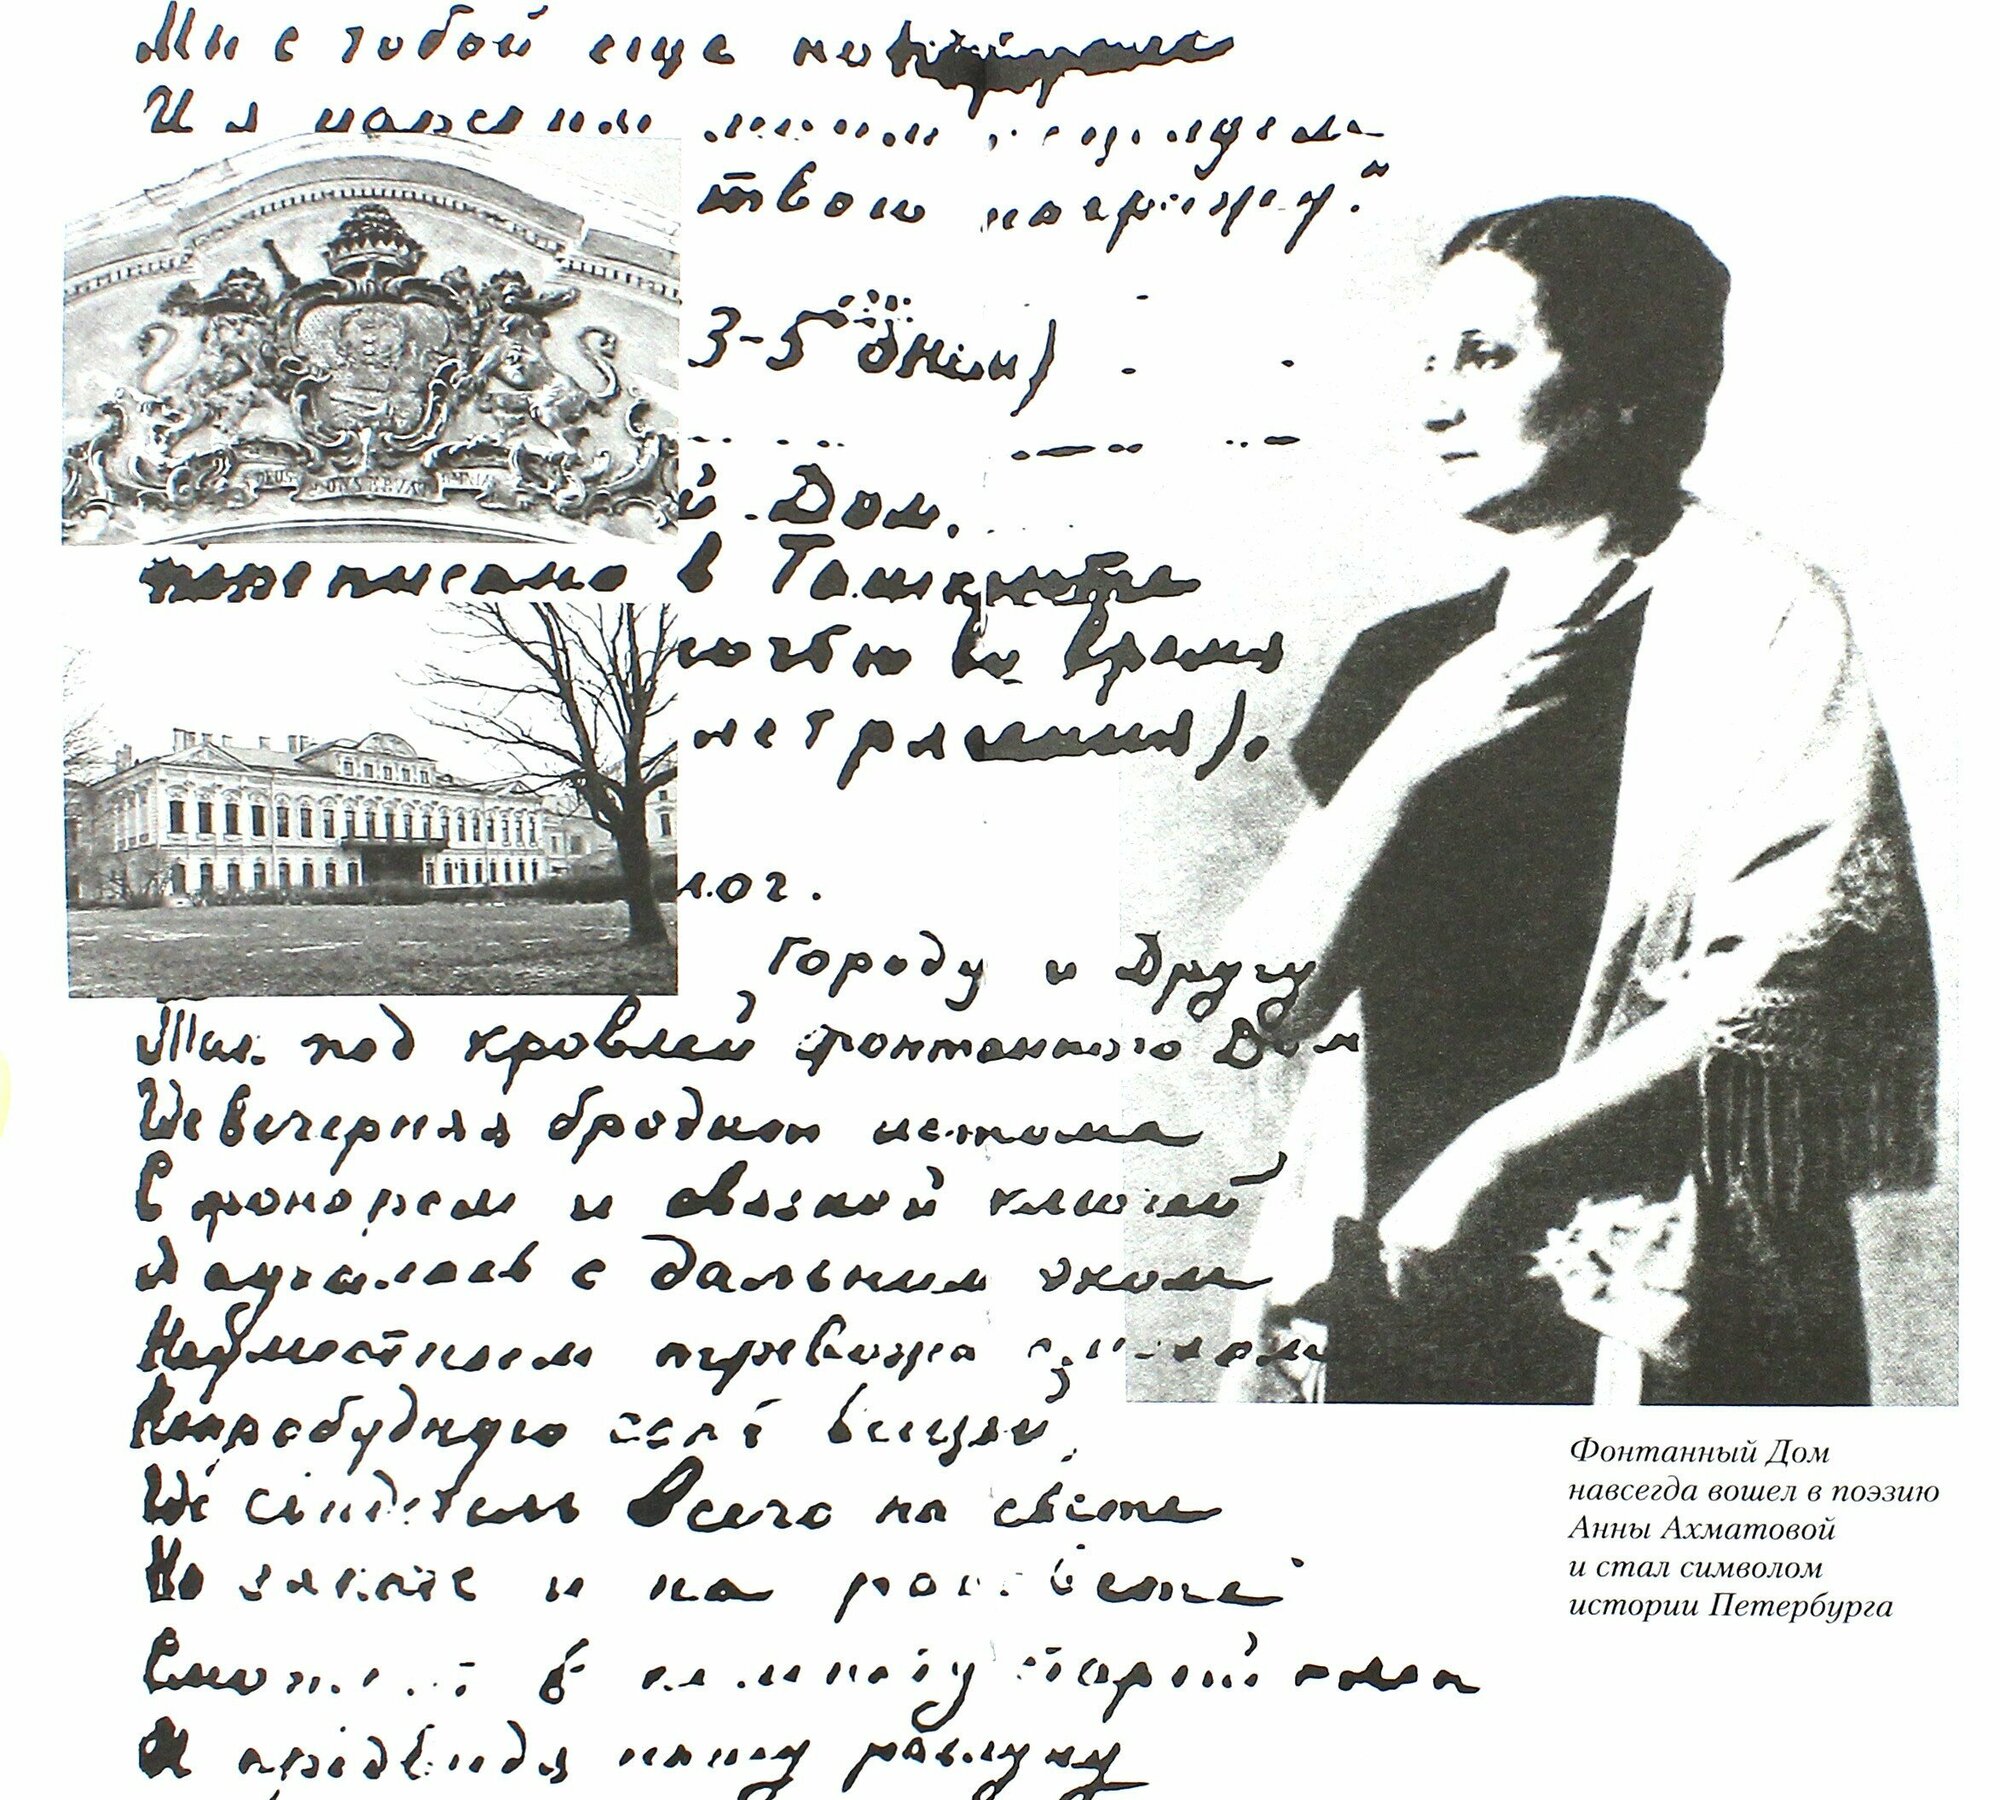 Мы с тобой еще
И я
твою награжу."
3-5
й Дом.
написано в Ташкенте
ночью во время
.
Городу и Другу
Так под кровлей Фонтанного Дом
Где вечерняя бродит истома
С фонарем и связкой ключей
Я аукалась с дальним эхом
Неуместным тревожа
Непробудную вещей
Где свидетель всего на свете
На закате и на рассвете
Смотрит в комнату старый клен
И предвидя нашу разлуку
DEUS CONSERVAT OMNIA
Фонтанный Дом
навсегда вошел в поэзию
Анны Ахматовой
и стал символом
истории Петербурга